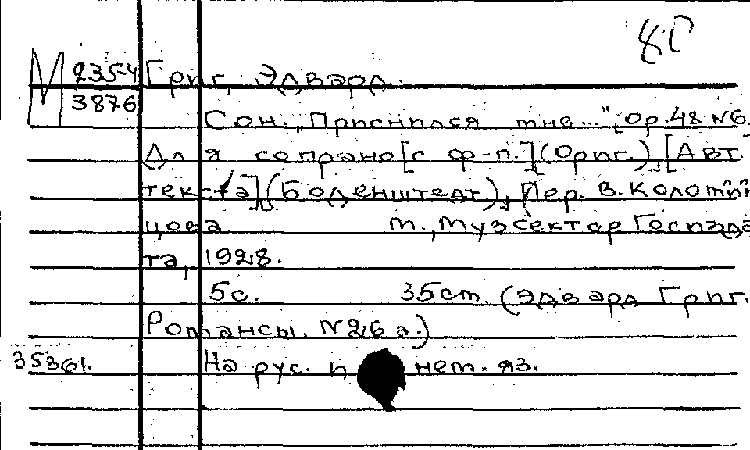 8Г
М 2354 Григ, Эдвард.
3876
Сон. „Приснился мне..." [Op. 48 №6.
Для сопрано [с ф-п.] (Ориг.), [Авт.
текста] (Боденштедт), Пер. В. Коломий
цова М., Музсектор Госизда
та, 1928.
5 с. 35 ст. (Эдвард Григ.
Романсы. №26а.)
35361. На рус. и нем. яз.